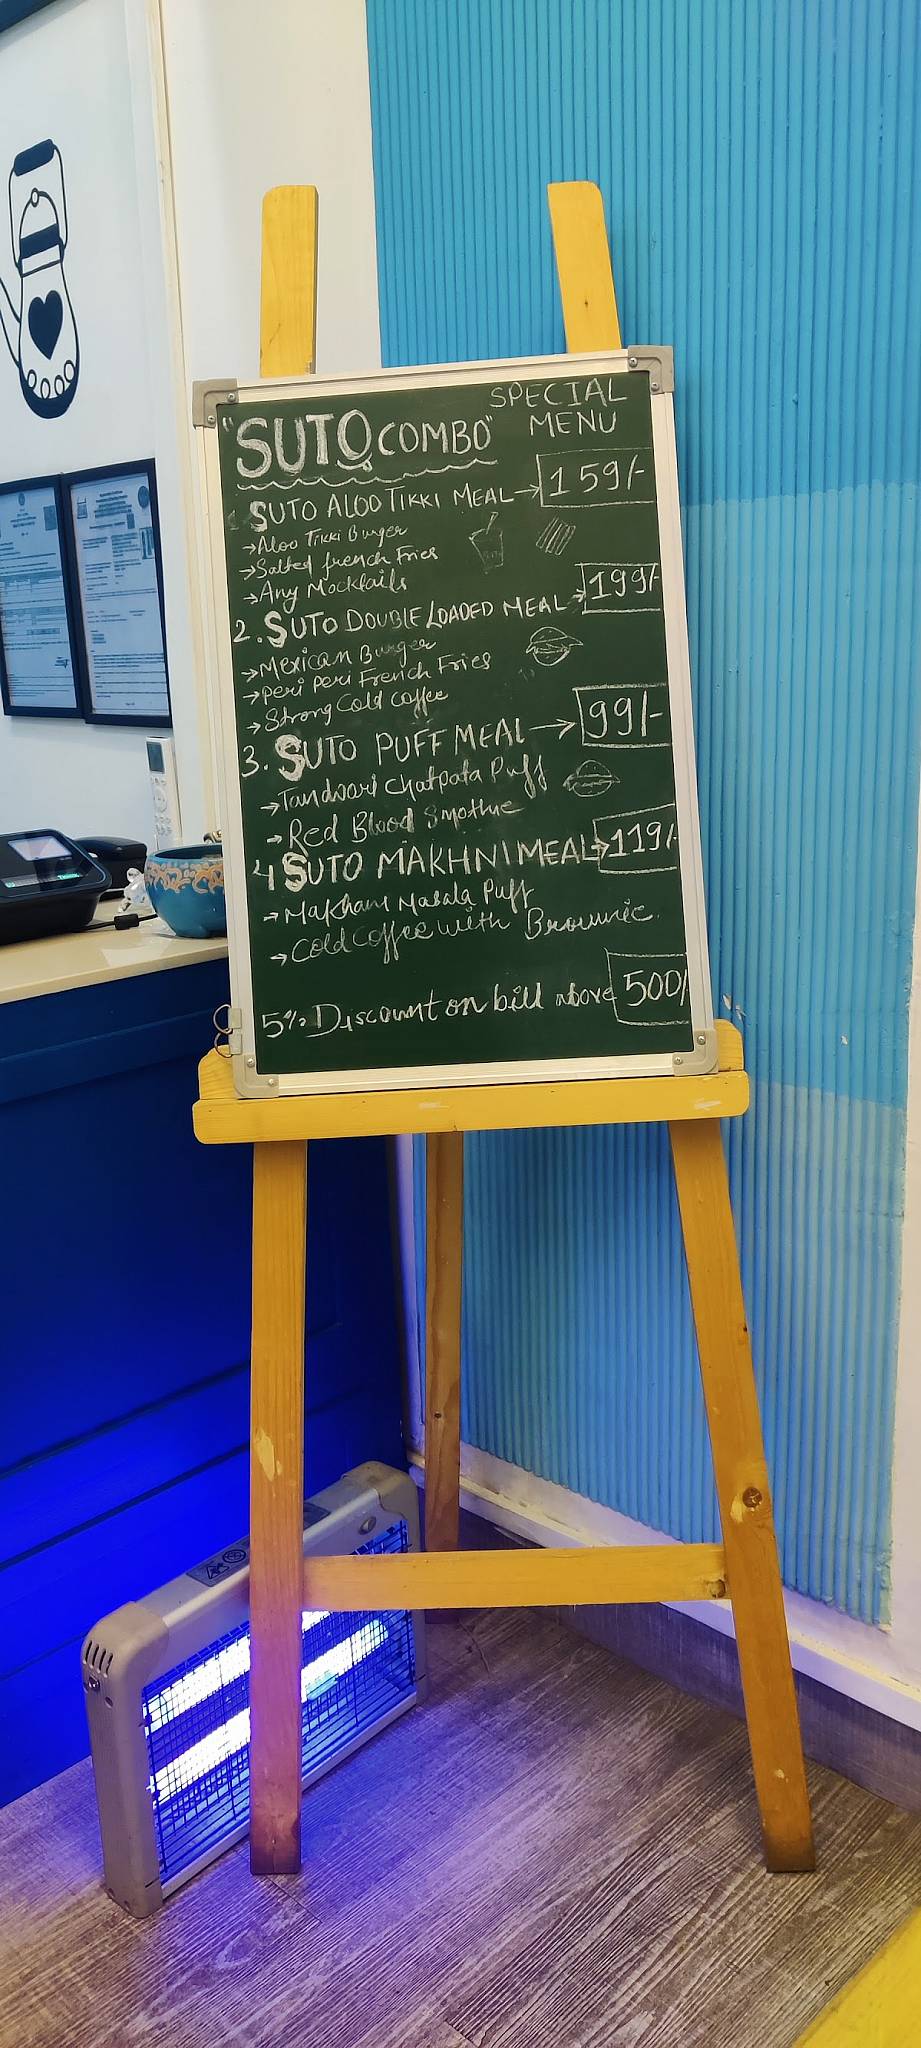 SPECIAL MENU
"SUTO COMBO"
SUTO ALOO TIKKI MEAL → 159/-
→ Aloo Tikki Burger
→ Salted french Fries
→ Any Mocktails
2. SUTO DOUBLE LOADED MEAL → 199/-
→ Mexican Burger
→ Peri Peri French Fries
→ Strong Cold coffee
3. SUTO PUFF MEAL → 99/-
→ Tandoori Chatpata Puff
→ Red Blood Smothie
4 SUTO MAKHNI MEAL → 119/-
→ Makhani Masala Puff
→ Cold Coffee with Brownie.
5% Discount on bill above 500/